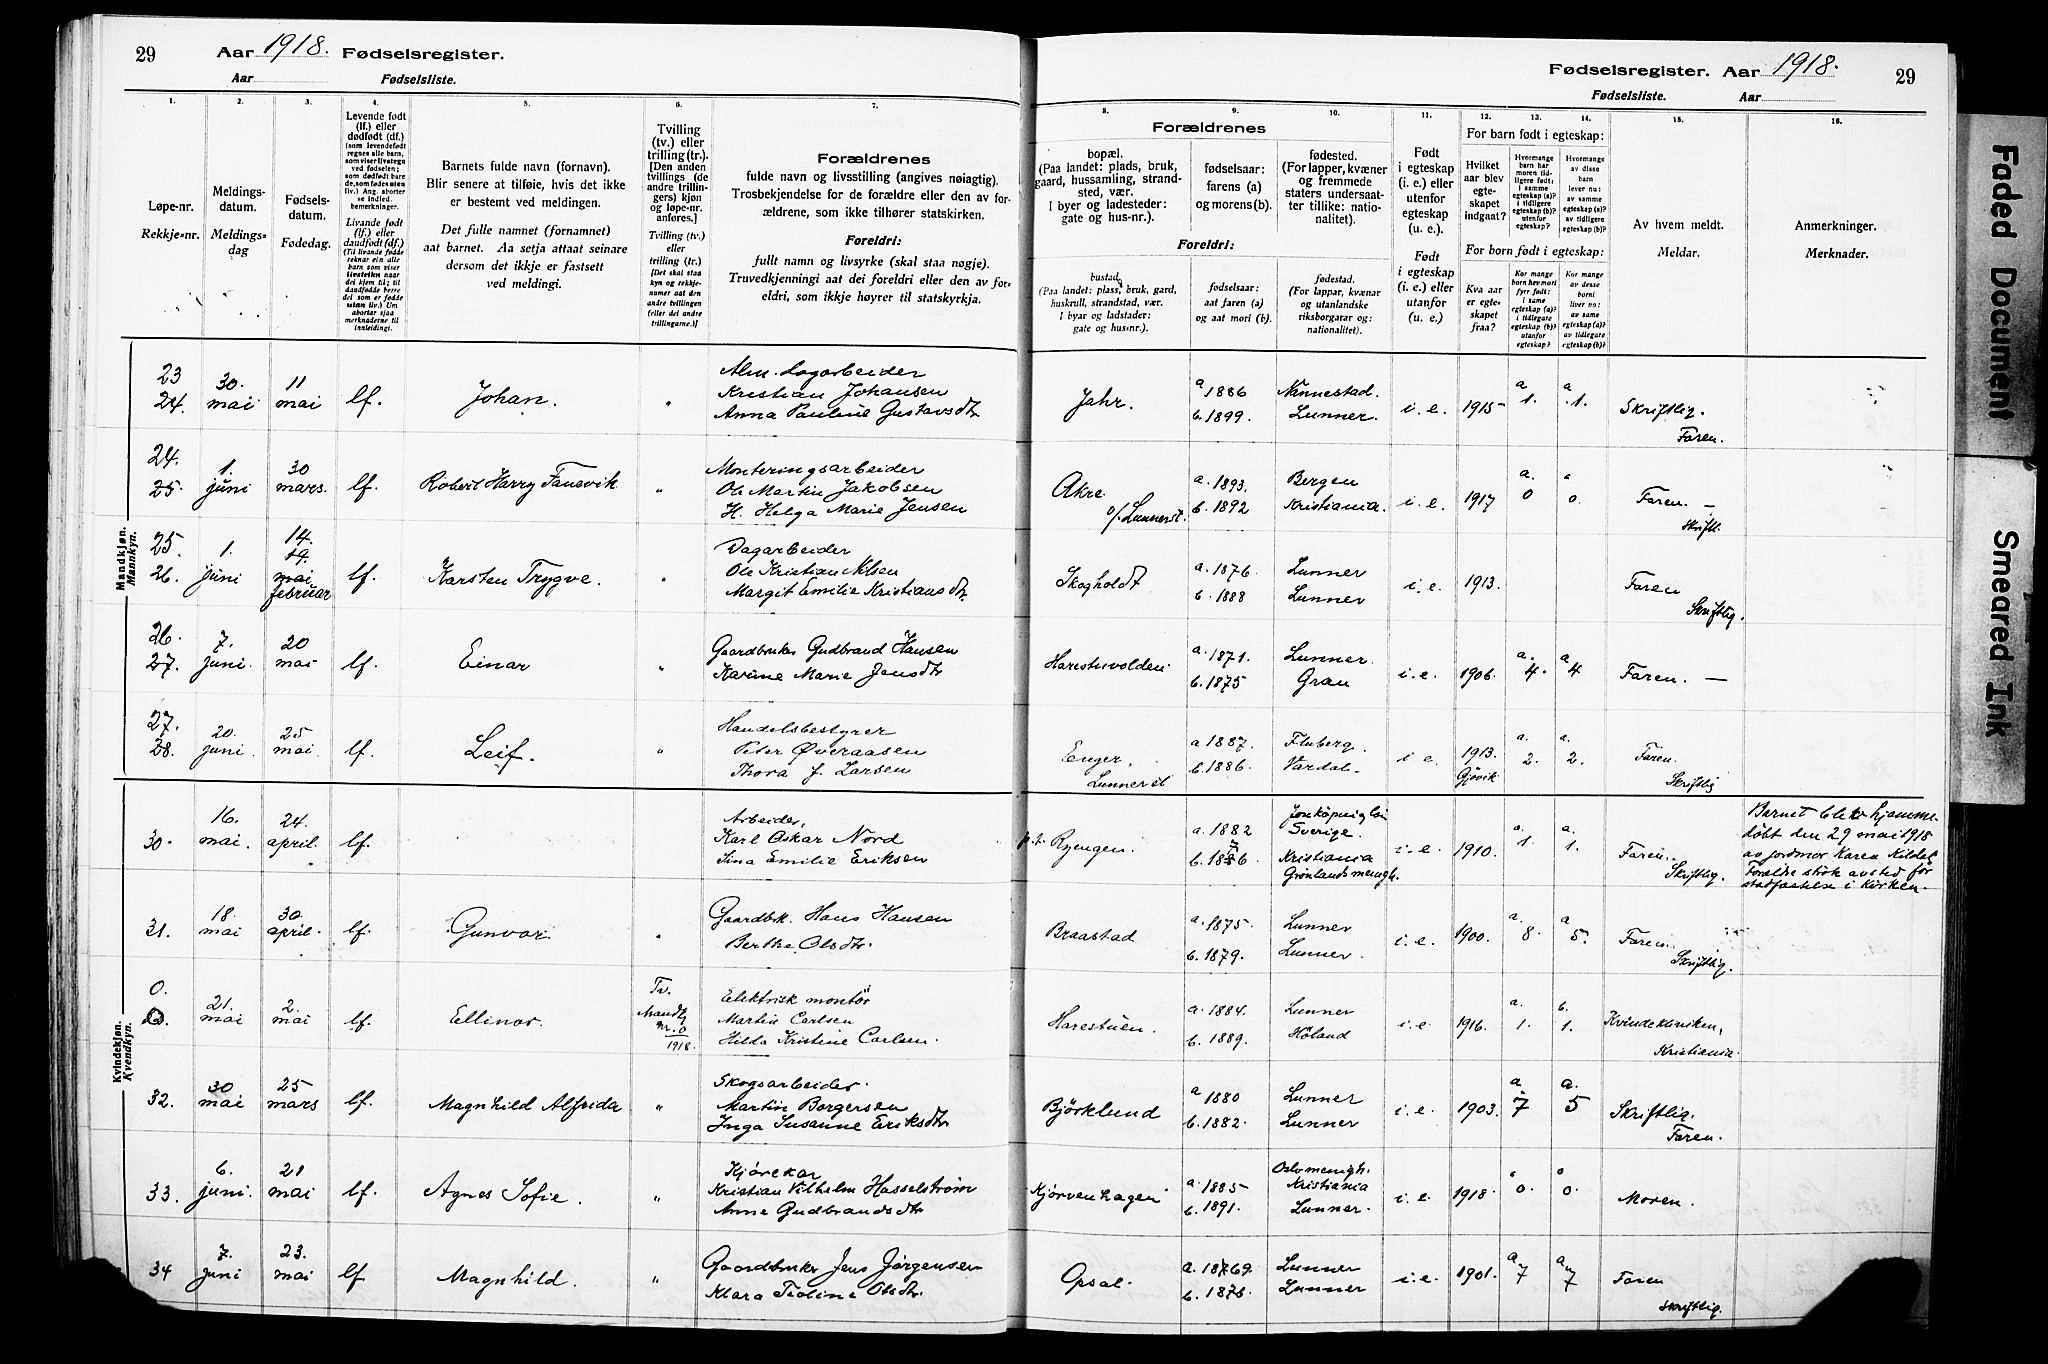 29 Aar 1918. Fødselsregister.
Aar Fødselsliste.
Fødselsregister. Aar 1918. 29
Fødselsliste. Aar
1. 2. 3. 4. 5. 6. 7.
Løpe-nr.
Rekkje-nr.
Meldings-
datum.
Meldings-
dag
Fødsels-
datum.
Fødedag.
Levende født
(lf.) eller
dødfødt (df.)
(som levendefødt
regnes alle barn,
som viser livstegn
ved fødselen;
som dødfødt bare
de, som fødes uten
liv.) Ang. aborter
se indled.
bemerkninger.
Livande født
(lf.) eller
daudfødt (df.)
(Til livande fødde
reknar ein alle
barn som viser
livsteikn naar
dei kjem til; til
daudfødde berre
dei som er fødde
utan liv.) Um
abortar sjaa
merknaderne til
innleidingi.
Barnets fulde navn (fornavn).
Blir senere at tilføie, hvis det ikke
er bestemt ved meldingen.
Det fulle namnet (fornamnet)
aat barnet. Aa setja attaat seinare
dersom det ikkje er fastsett
ved meldingi.
Tvilling
(tv.) eller
trilling (tr.).
[Den anden
tvillings (de
andre trillin-
gers) kjøn
og løpe-nr.
anføres.]
Tvilling (tv.)
eller
trilling (tr.)
[Det skal staa
kyn og rekkje-
numer aat den
andre tvillingen
(eller dei andre
trillingarne.)]
Forældrenes
fulde navn og livsstilling (angives nøiagtig).
Trosbekjendelse for de forældre eller den av for-
ældrene, som ikke tilhører statskirken.
Foreldri:
fullt namn og livsyrke (skal staa nøgje).
Truvedkjenningi aat dei foreldri eller den av for-
eldri, som ikkje høyrer til statskyrkja.
8. 9. 10. 11. 12. 13. 14. 15. 16.
Forældrenes
bopæl.
(Paa landet: plads, bruk,
gaard, hussamling, strand-
sted, vær.
I byer og ladesteder:
gate og hus-nr.).
fødselsaar:
farens (a)
og morens (b).
fødested.
(For lapper, kvæner
og fremmede
staters undersaat-
ter tillike: natio-
nalitet).
Foreldri:
bustad.
(Paa landet: plass, bruk, gard,
huskrull, strandstad, vær.
I byar og ladstader:
gate og hus-nr.).
fødselsaar:
aat faren (a)
og aat mori (b).
fødestad.
(For lappar, kvænar
og utanlandske
riksborgarar og:
nationalitet).
Født
i egteskap
(i. e.) eller
utenfor
egteskap
(u. e.).
Født
i egteskap
(i. e.) eller
utanfor
egteskap
(u. e.).
For barn født i egteskap:
Hvilket
aar blev
egte-
skapet
indgaat?
Hvormange
barn har
moren tid-
ligere født:
i samme
egteskap (a)?
i tidligere
egteskap (b)?
utenfor
egteskap?
Hvormange
av disse
barn
lever nu:
av samme
egteskap (a)?
av tidligere
egteskap (b)?
For born født i egteskap:
Kva aar
er egte-
skapet
fraa?
Kor mange
born hev mori
fyrr født:
i same
egteskap (a)?
i tidlegare
egteskap (b)?
utanfor
egteskap?
Kor mange
av desse
borni
liver no:
av same
egteskap (a)?
av tidlegare
egteskap (b)?
Av hvem meldt.
Meldar.
Anmerkninger.
Merknader.
Mandkjøn.
Mannkyn.
23 24. 30. mai 11 mai lf. Johan. " Alm. Lagarbeider
Kristian Johansen
Anna Pauline Gustavsdtr
Jahr. a 1886 b. 1899. Nannestad. Lunner. i. e. 1915- a 1. a 1. Skriftlig. Faren.
24. 25. 1. juni 30 mars. lf. Robert Harry Fanevik " Monteringsarbeider
Ole Martin Jakobsen
H. Helga Marie Jensen
Akre o/. Lunner st. a. 1893. b. 1892 Bergen Kristiania. i. e. 1917 a. 0 " 0. Faren. — Skriftl.
25. 26. 1. juni 14. 19. mai februar lf. Karsten Trygve. " Dagarbeider
Ole Kristian Nilsen
Margit Emilie Kristiansdtr.
Skogholdt a. 1876. b. 1888 Lunner Lunner i. e. 1913. Faren Skriftlig.
26. 27. 7. juni. 20 mai lf. Einar " Gaardbruker Gudbrand Hansen
Karine Marie Jensdtr
Harestuvolden a. 1871. b. 1875 Lunner. Gran i. e. 1906. a. 4. a 4 Faren. —
27. 28. 20. juni. 25 mai. lf. Leif. " Handelsbestyrer
Peter Øveraasen
Thora J. Larsen
Enger, Lunner st a 1887. b. 1886. Fluberg. Vardal. i. e 1913. Gjøvik a. 2. a. 2. Faren. Skriftlig
Kvindekjøn.
Kvendkyn.
30. 16. mai. 24. april. lf. Arbeider,
Karl Oskar Nord
Sina Emilie Eriksen
p.t. Ryengen. a. 1882 b. 1886. Jønkøpings län Sverige. Kristiania Grønlands menigh. i. e. 1910. a. 1. a. 1. Faren. Skriftlig.
Barnet blev hjemme-
døbt den 29 mai 1918
av jordmor Karen Kildal
Forældre strøk avsted før
stadfæstelse i kirken.
31. 18. mai 30. april. lf. Gunvor. " Gaardbr. Hans Hansen
Berthe Olsdtr.
Braastad a. 1875. b. 1879. Lunner Lunner. i. e. 1900. a 8. a 5. Faren. Skriftlig.
0. 21. mai 2. mai lf. Ellinor. Tv. Mandkj. nr. 0 1918. Elektrisk montør
Martin Carlsen
Hilda Kristine Carlsen.
Harestuen. a. 1884. b. 1889. Lunner Høland i. e. 1916. a. 1. b. 1. Kvindekliniken, Kristiania.
32. 30 mai 25 mars lf. Magnhild Alfrida " Skogsarbeider.
Martin Borgersen
Inga Susanne Eriksdtr
Bjørklund a 1880 b. 1882. Lunner Lunner i. e. 1903. a 7 a. 5 Skriftlig. Faren.
33. 6. juni. 21 mai lf. Agnes Sofie. " Kjørekar
Kristian Vilhelm Hasselstrøm
Anne Gudbrandsdtr
Kjørvenhagen a. 1885- b. 1891. Oslo menigh. Kristiania Lunner. i. e. 1918. " 0. " 0. Moren.
34 7. juni 23. mai lf Magnhild. " Gaardbruker Jens Jørgensen
Klara Tioline Olsdtr.
Opsal. a. 1869. b. 1876. Lunner Lunner i. e. 1901. a 7 a 7 Faren Skriftlig.
Faded Document
Smeared Ink